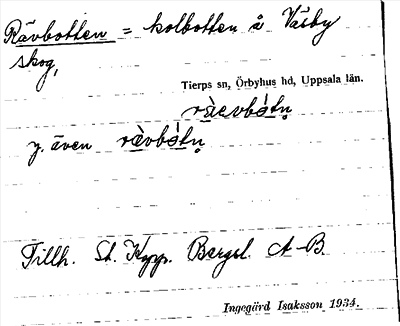 Rävbotten = kolbotten å Väsby
skog,
Tierps sn, Örbyhus hd, Uppsala län.
ràevbótṇ
y. även rävbótṇ
Tillh. St. Kyrp. Bergsl. A-B.
Ingegärd Isaksson 1934.